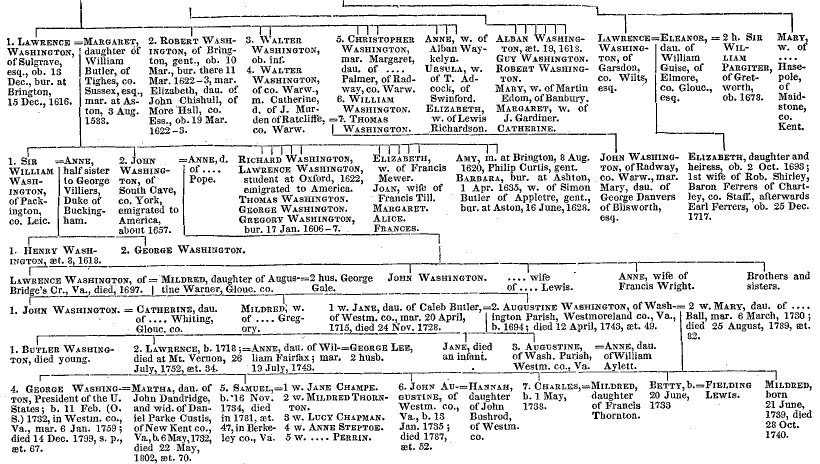 1. LAWRENCE
WASHINGTON,
of Sulgrave,
esq., ob. 13
Dec., bur. at
Brington,
15 Dec., 1616.
=MARGARET,
daughter of
William
Butler, of
Tighes, co.
Sussex, esq.,
mar. at As-
ton, 3 Aug.
1588.
2. ROBERT WASH-
INGTON, of Bring-
ton, gent., ob. 10
Mar., bur. there 11
Mar. 1622-3, mar.
Elizabeth, dau. of
John Chishull, of
More Hall, co.
Ess., ob. 19 Mar.
1622-3.
3. WALTER
WASHINGTON,
ob. inf.
4. WALTER
WASHINGTON,
of co. Warw.,
m. Catherine,
d. of J. Mur-
den of Ratcliffe,
co. Warw.
5. CHRISTOPHER
WASHINGTON,
mar. Margaret,
dau. of ....
Palmer, of Rad-
way, co. Warw.
6. WILLIAM
WASHINGTON.
=7. THOMAS
WASHINGTON.
ANNE, w. of
Alban Way-
kelyn.
URSULA, w.
of T. Ad-
cock, of
Swinford.
ELIZABETH,
w. of Lewis
Richardson.
ALBAN WASHING-
TON, æt. 19, 1618.
GUY WASHINGTON.
ROBERT WASHING-
TON.
MARY, w. of Martin
Edom, of Banbury.
MARGARET, w. of
J. Gardiner.
CATHERINE.
LAWRENCE
WASHING-
TON, of
Garsdon,
co. Wilts,
esq.
=ELEANOR,
dau. of
William
Guise, of
Elmore,
co. Glouc.,
esq.
=2 h. SIR
WIL-
LIAM
PARGITER,
of Gret-
worth,
ob. 1678.
MARY,
w. of
....
Hase-
pole,
of
Maid-
stone,
co.
Kent.
1. SIR
WILLIAM
WASH-
INGTON,
of Pack-
ington,
co. Leic.
=ANNE,
half sister
to George
Villiers,
Duke of
Bucking-
ham.
2. JOHN
WASHING-
TON, of
South Cave,
co. York,
emigrated to
America,
about 1657.
=ANNE, d.
of ....
Pope.
RICHARD WASHINGTON,
LAWRENCE WASHINGTON,
student at Oxford, 1622,
emigrated to America.
THOMAS WASHINGTON.
GEORGE WASHINGTON.
GREGORY WASHINGTON,
bur. 17 Jan. 1606-7.
ELIZABETH,
w. of Francis
Mewer.
JOAN, wife of
Francis Till.
MARGARET.
ALICE.
FRANCES.
AMY, m. at Brington, 8 Aug.
1620, Philip Curtis, gent.
BARBARA, bur. at Ashton,
1 Apr. 1635, w. of Simon
Butler of Appletre, gent.,
bur. at Aston, 16 June, 1628.
JOHN WASHING-
TON, of Radway,
co. Warw., mar.
Mary, dau. of
George Danvers
of Blisworth,
esq.
ELIZABETH, daughter and
heiress, ob. 2 Oct. 1693;
1st wife of Rob. Shirley,
Baron Ferrers of Chart-
ley, co. Staff., afterwards
Earl Ferrers, ob. 25 Dec.
1717.
1. HENRY WASH-
INGTON, æt. 3, 1618.
2. GEORGE WASHINGTON.
LAWRENCE WASHINGTON, of
Bridge's Cr., Va., died, 1697.
= MILDRED, daughter of Augus-
tine Warner, Glouc. co.
=2 hus. George
Gale.
JOHN WASHINGTON.
.... wife
of .... Lewis.
ANNE, wife of
Francis Wright.
Brothers and
sisters.
1. JOHN WASHINGTON.
= CATHERINE, dau.
of .... Whiting,
Glouc. co.
MILDRED, w.
of .... Greg-
ory.
1 w. JANE, dau. of Caleb Butler,
of Westm. co., mar. 20 April,
1715, died 24 Nov. 1728.
=2. AUGUSTINE WASHINGTON, of Wash-
ington Parish, Westmoreland co., Va.,
b. 1694; died 12 April, 1743, æt. 49.
= 2 w. MARY, dau. of ....
Ball, mar. 6 March, 1730;
died 25 August, 1789, æt.
82.
1. BUTLER WASHING-
TON, died young.
2. LAWRENCE, b. 1718
died at Mt. Vernon, 26
July, 1752, æt. 34.
=ANNE, dau. of Wil-
liam Fairfax; mar.
19 July, 1743.
=GEORGE LEE,
2 husb.
JANE, died
an infant.
3. AUGUSTINE,
of Wash. Parish,
Westm. co., Va.
=ANNE, dau.
of William
Aylett.
4. GEORGE WASHING-
TON, President of the U.
States; b. 11 Feb. (O.
S.) 1732, in Westm. co.,
Va., mar. 6 Jan. 1759;
died 14 Dec. 1799, s. p.,
æt. 67.
=MARTHA, dau. of
John Dandridge,
and wid. of Dan-
iel Parke Custis,
of New Kent co.,
Va., b. 6 May, 1732,
died 22 May,
1802, æt. 70.
5. SAMUEL,
b. 16 Nov.
1734, died
in 1781, æt.
47, in Berke-
ley co., Va.
=1 w. JANE CHAMPE.
2 w. MILDRED THORN-
TON.
3 w. LUCY CHAPMAN.
4 w. ANNE STEPTOE.
5 w. .... PERRIN.
6. JOHN AU-
GUSTINE, of
Westm. co.,
Va., b. 13
Jan. 1735;
died 1787,
æt. 52.
=HANNAH,
daughter
of John
Bushrod,
of Westm.
co.
7. CHARLES,
b. 1 May,
1738.
=MILDRED,
daughter
of Francis
Thornton.
BETTY, b.
20 June,
1733
=FIELDING
LEWIS.
MILDRED,
born
21 June,
1739, died
28 Oct.
1740.